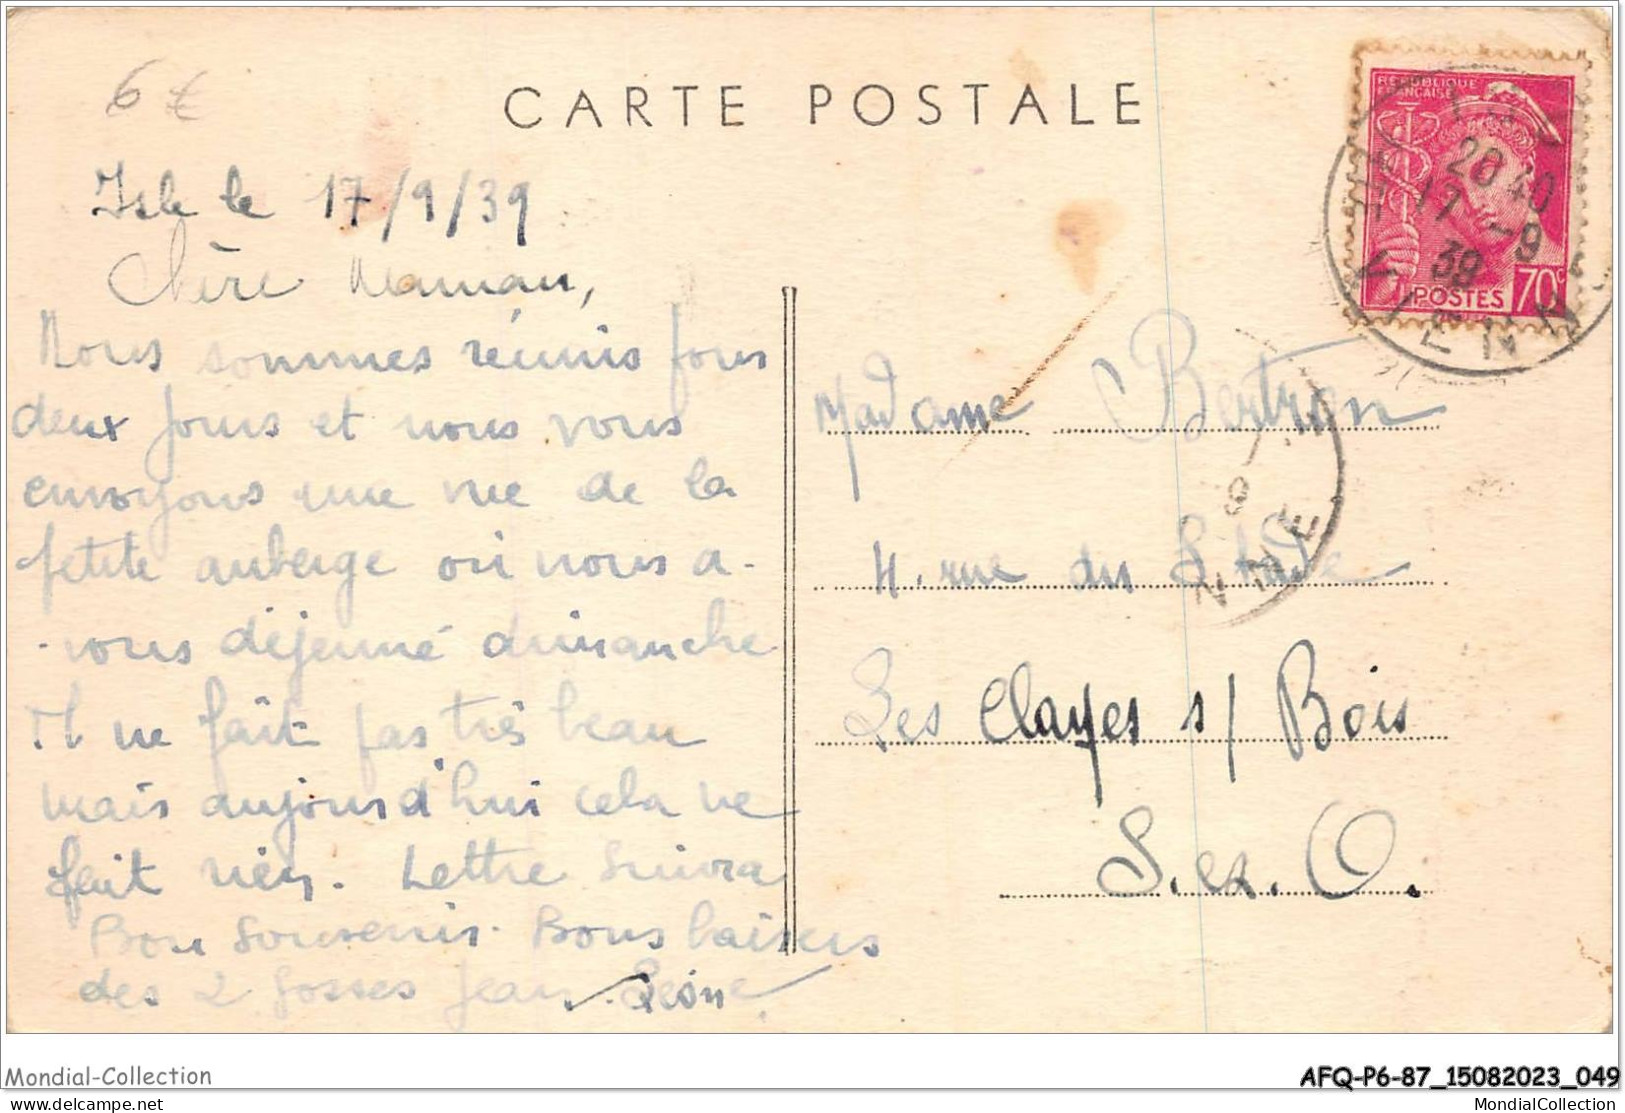 6 €
CARTE POSTALE
RÉPUBLIQUE
FRANÇAISE
POSTES 70c
20 40
17 - 9
39
VIENNE
Isle le 17/9/39
Chère Maman,
Nous sommes réunis pour
deux jours et nous vous
envoyons une vue de la
petite auberge où nous a-
-vons déjeuné dimanche
Il ne fait pas très beau
mais aujourd'hui cela ne
fait rien. Lettre suivra
Bon souvenir. Bons baisers
des 2 gosses Jean
Madame Bertron
4. rue du Stade
Les Clayes s/ Bois
S. et. O.
9
NNE
Mondial-Collection
AFQ-P6-87_15082023_049
Mondial-Collection.com
MondialCollection